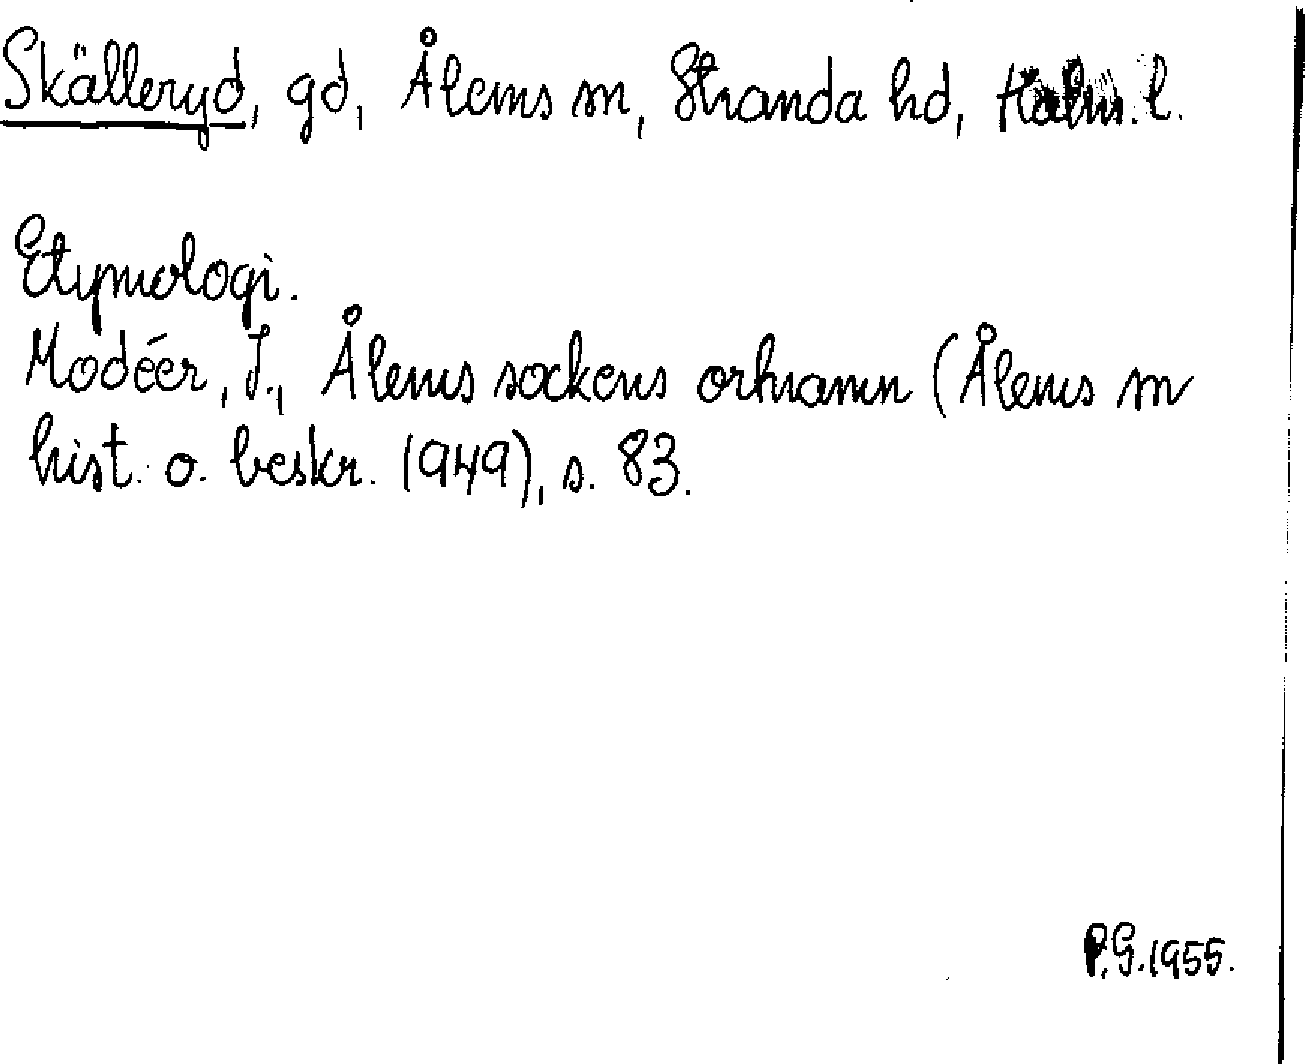 Skälleryd, gd, Ålems sn, Stranda hd, Kalm. l.
Etymologi.
Modéer, I., Ålems sockens ortnamn (Ålems sn
hist. o. beskr. 1949), s. 83.
P.G. 1955.